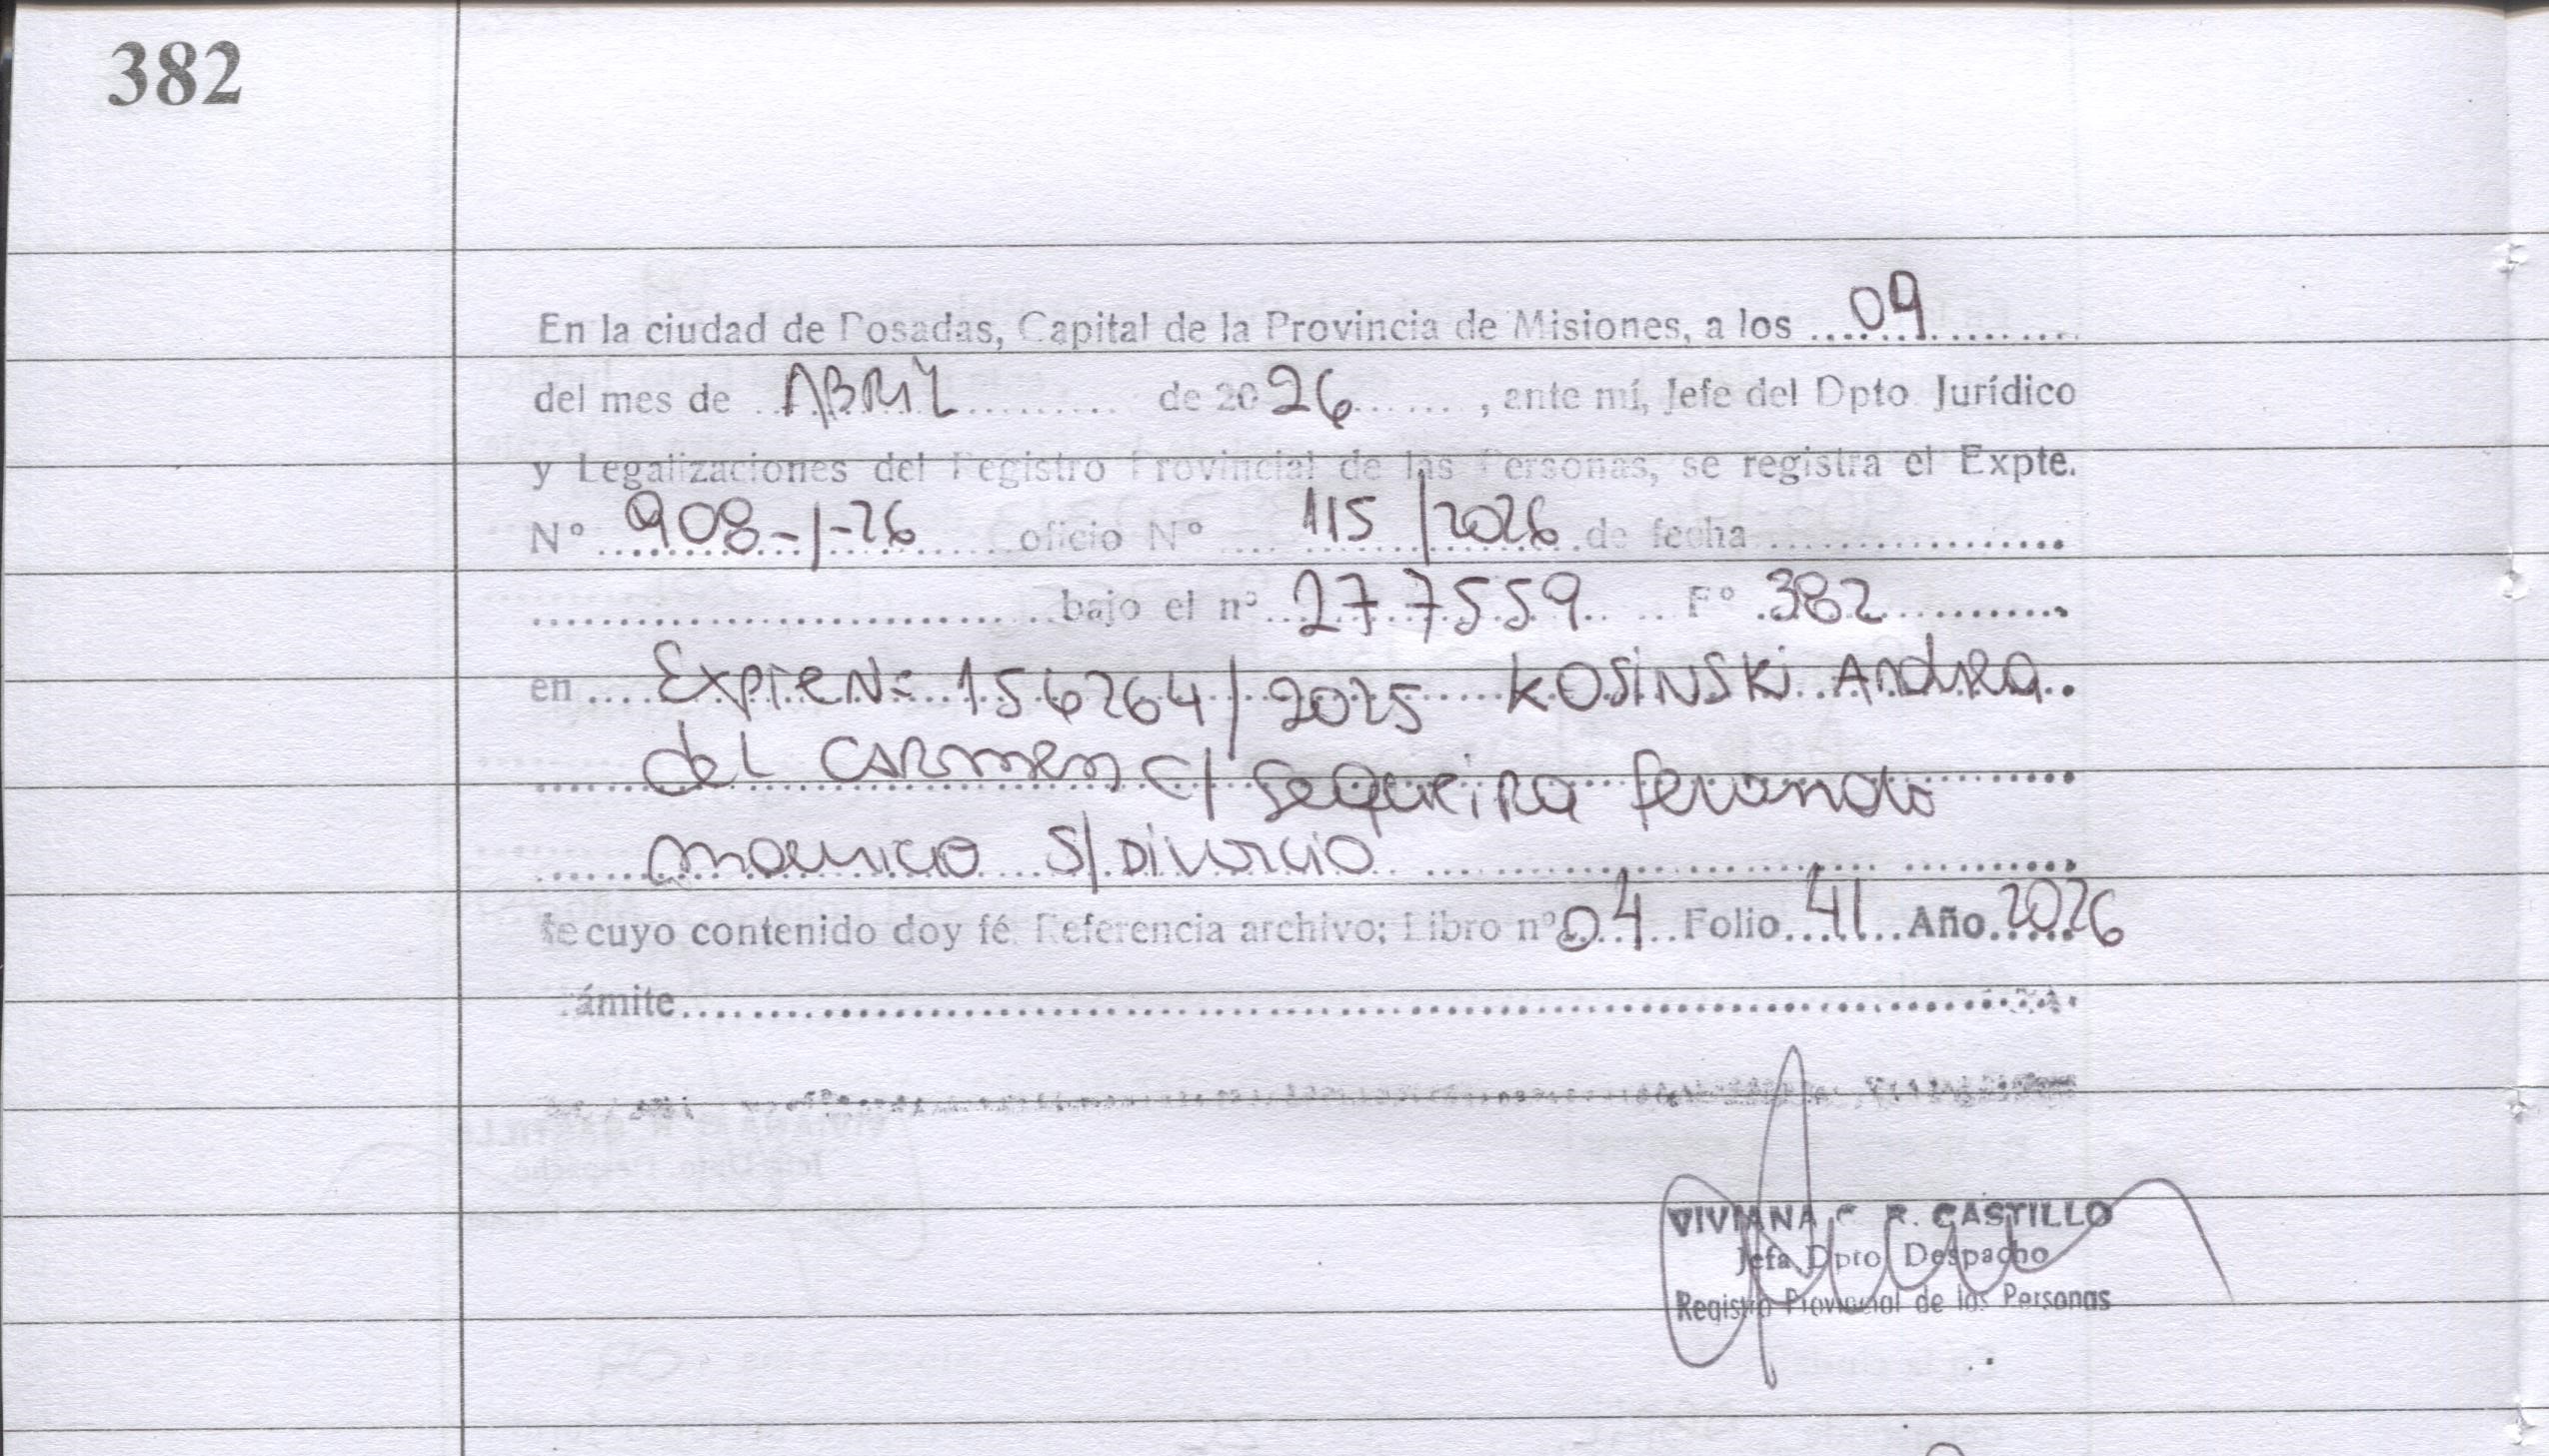 382
En la ciudad de Posadas, Capital de la Provincia de Misiones, a los 09
del mes de ABRIL de 2026, ante mí, Jefe del Dpto Jurídico
y Legalizaciones del Registro Provincial de las Personas, se registra el Expte.
N° 908-1-26 oficio N° 115/2026 de fecha
bajo el n° 277559 F° 382
en Expte N: 156264/2025 KOSINSKI Andrea
del CARMEN C/ Sequeira Fernando
mauricio S/ Divorcio
de cuyo contenido doy fé Referencia archivo; Libro n° 04 Folio 41 Año 2026
rámite
VIVIANA R. CASTILLO
Jefa Dpto Despacho
Registro Provincial de las Personas